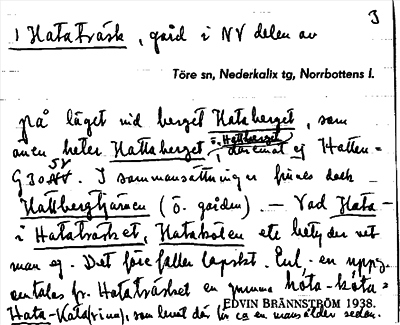 3
1 Hataträsk, gård i NV delen av
Töre sn, Nederkalix tg, Norrbottens l.
på läget vid berget Hataberget, som
även heter Hattaberget, ö. Hattberget, däremot ej Hatten =
G30SV. I sammansättningar finnes dock
Hattbergtjärnen (ö. gården). — Vad Hata-
i Hataträsket, Hatabölen etc betyder vet
man ej. Det förefaller lapskt. Enl. en uppg.
antales fr. Hataträsket en gumma hóta-kòta =
Hata-Kata(rina), som levat där för ca en mansålder sedan.
EDVIN BRÄNNSTRÖM 1938.